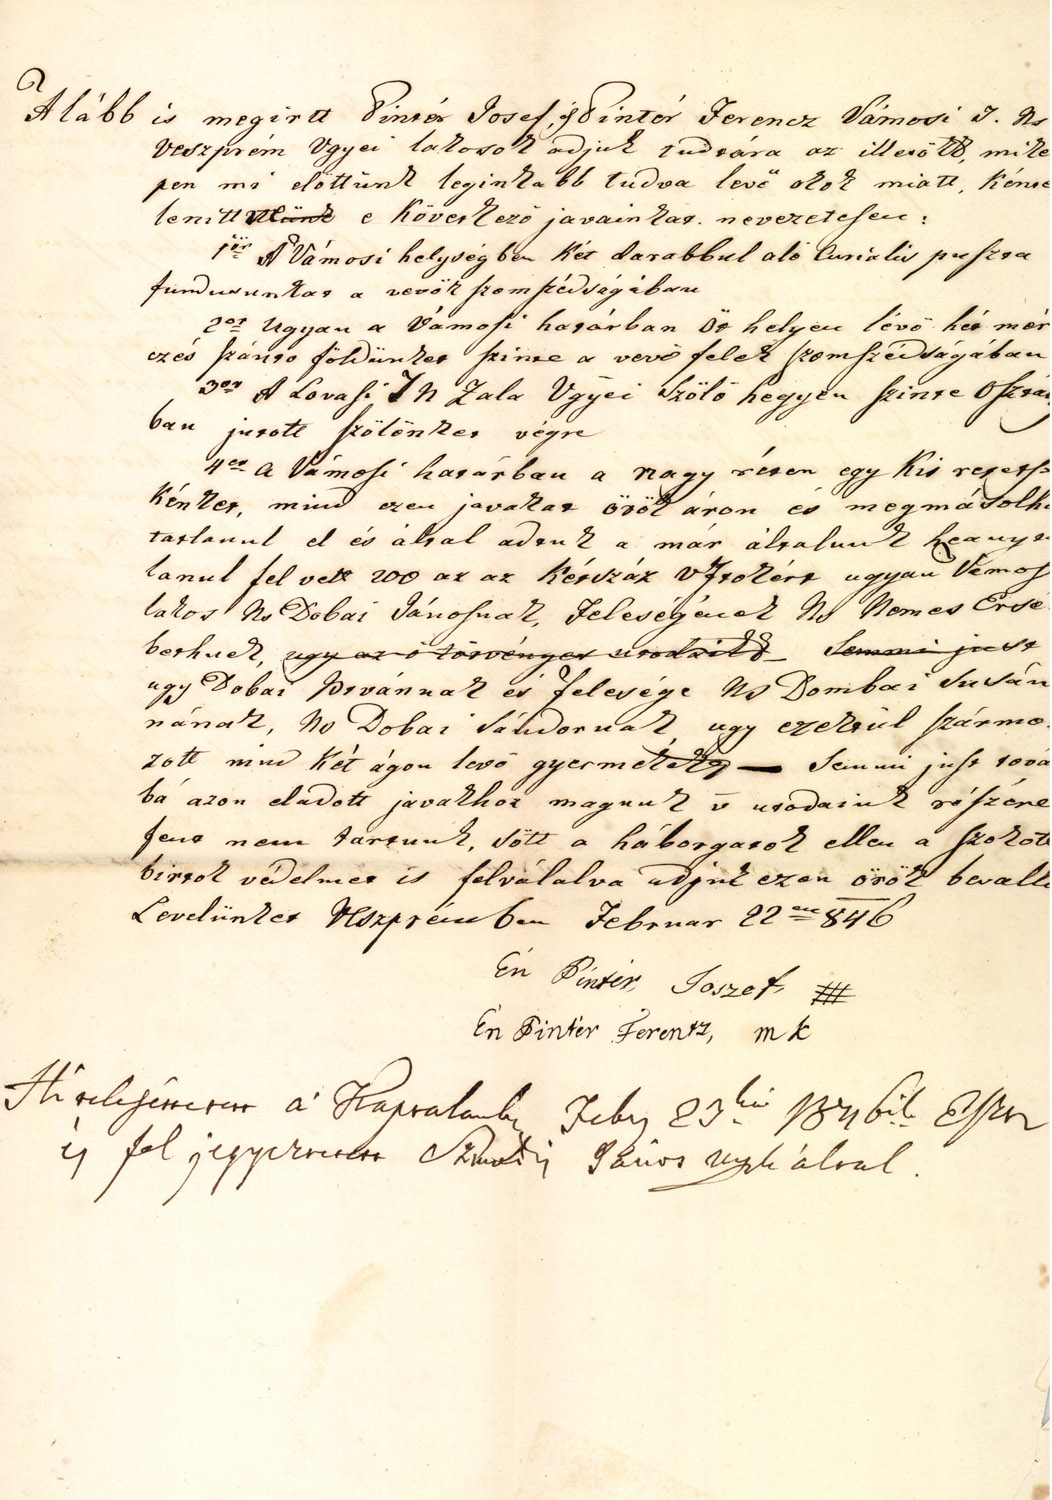 Alább is megirtt Pintér Josef, és Pintér Ferencz Vámosi T. Ns
Veszprém Vgyei lakosok adjuk tudtára az illetőkk, mike
pen mi előttünk leginkább tudva levő okok miatt, Kénte
lenitt e Következő javainkat. nevezetesen:
1ör A Vámosi helységben Két darabbul aló Curialis puszta
fundusunkat a vevők szomszédságában
2or Ugyan a Vámosi határban Öt helyen lévő hét mér
czés szánto földünket szinte a vevő felek szomszédságában
3or A Lovasi T N Zala Vgyei Szölö hegyen szinte Osztály
ban jutott szölönket végre
4er A Vámosi határban a nagy réten egy Kis retets
Kénket, mind ezen javakat örök áron és megmásolha
tatlanul el és által adtuk a már általunk heanyta
lanul fel vett 200 az az Kétszáz vfrtokért ugyan Vámos
lakos Ns Dobai Jánosnak, Feleségének Ns Nemes Erse
bethnek, ugy az ő törvényes utodaikk Semmi just
ugy Dobai Istvánnak és felesége Ns Dombai Susán
nának, Ns Dobai Sándornak, ugy ezektül szárma
zott mind Két ágon levő gyermekekk — Semmi just tová
bá azon eladott javakhoz magunk v utodaink részére
fent nem tartunk, sött a háborgatok ellen a szokott
birtok védelmet is felválalva adjuk ezen örök bevalló
Levelünket Veszprémben Februar 22en 846
Én Pintér, Joszef, ###
Én Pintér Ferentz, m k
a Káptalanba Feby 23kán 1846ik Eszten
és fel jegyeztetett János által.